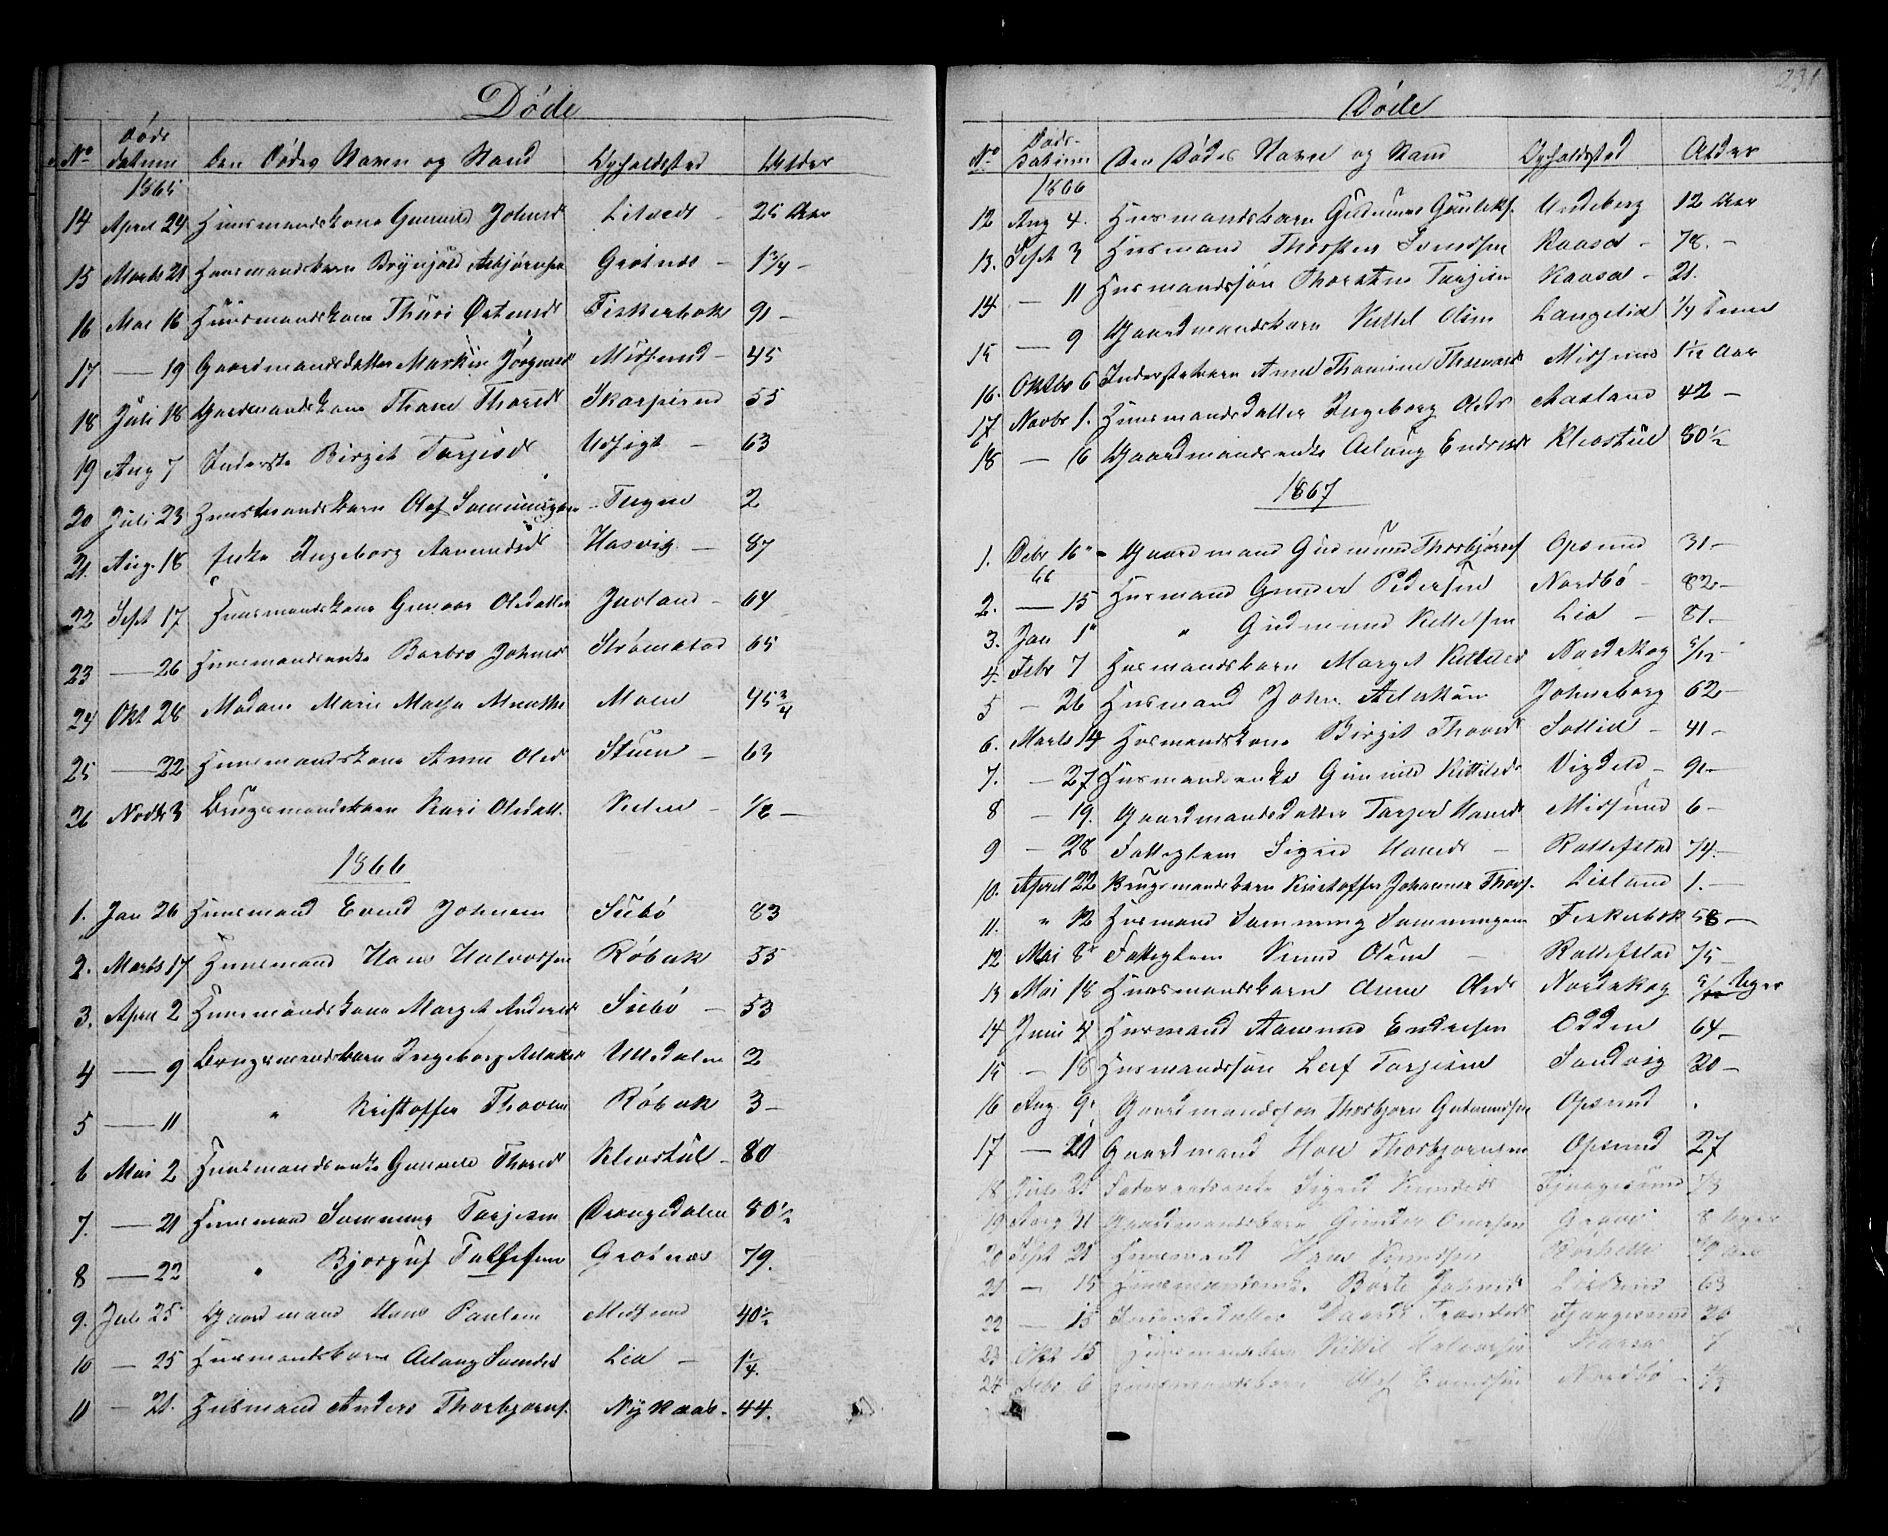 Døde
No Døds datum Den Dødes Navn og Stand Opholdsted Alder
1865
14 April 29 Huusmandskone Gunnild Johnsd Litvedt - 25 Aar
15 Marts 21 Huusmandsbarn Brynjuld Asbjørnsen Grotnæs - 1 3/4 -
16 Mai 16 Huusmandskone Thuri Østensd Fiskerbæk 91 -
17 — 19 Gaardmandsdatter Jørgensd Midsund - 45
18 Juli 18 Gaardmandskone Thone Thoresd 55
19 Aug 7 Inderste Birgit Tarjeisd Udsigt - 63
20 Juli 23 Huusmandsbarn Olaf 2
21. Aug. 18 Enke Ingeborg Aamundsd Hasvig - 87
22 Sept 17 Huusmandskone Gunvor Olsdatter Jusland - 64
23 — 26 Huusmandsenke Barbro Johnsd Strømstad 65
24 Okt 28 Madam Marie Moen 45 3/4
25 — 22 Huusmandskone Anne Olsd Stuen - 63
26 Novbr 3 Brugsmandsbarn Kari Olsdatt. - 1/2 -
1866
1. Jan 26 Huusmand Evind Johnsen Siebø 83
2. Marts 17 Huusmand Hans Halvorsen Røbæk 55
3. April 2 Huusmandskone Marget Andersd Siebø - 53
4 — 9 Brugsmandsbarn Ingeborg Ulledalen 2
5 — 11 " Kristoffer Thoresen Røbæk 3 -
6 Mai 2 Huusmandsenke Gunnild Thoresd Klevstul - 80
7. — 21 Huusmand Tarjesen Drangedalen 80 1/2
8 — 22 " Bjorguf Tallefsen Grotnæs 79.
9. Juli 25 Gaardmand Hans Paulsen Midsund 40 1/2
10 — 25 Huusmandsbarn Aslaug Lia - 1 1/4
11 — 21. Husmand Anders Thorbjørns. Nykaas - 44.
231
Døde
No Døds-Datum Den Dødes Navn og Stand Opholdssted Alder
1866
12 Aug 4. Husmandsbarn Gudmund Gunleiks. Undeberg 12 Aar
13. Sept 3 Husmand Thorsten Svendsen Kaasa - 78. -
14 — 11 Husmandssøn Thorsten Tarjesen Kaasa - 21.
15 — 9 Gaardmandsbarn Kittel Olsen Langelid 1/4
16. Oktbr 6 Inderstebarn Anne Thomine Midsund 1 1/12 Aar
17 Novbr 1. Huusmandsdatter Ingeborg Olsd Aasland 42 -
18 — 16 Gaardmandsenke Aslaug Endresd Klevstul 80 1/2
1867
1. Debr 16 Gaardmand Gudmund Thorbjørns Opsund 31 -
66
2. — 15 Husmand Gunder Pedersen Nordbø - 82 -
3. Jan 1 " Gudmund Kittelsen Lia - 81. -
4. Febr 7 Husmandsbarn Marget Kittelsd Nordskog 5/12 -
5 — 26 Husmand John Aslaksen Johnsborg 62 -
6. Marts 14 Husmandskone Birgit Thoresd Sollid - 41 -
7. — 27 Husmandsenke Gunnild Kittilsd - 91 -
8 — 19. Gaardmandsdatter Tarjerd Hansd Midsund 6 -
9 — 28 Fatteglem Sigrid Hansd - Rollefstad 74. -
10. April 22 Brugsmandsbarn Kristoffer Johannes Thors. Lisland 1. -
11. " 12 Husmand Fiskerbæk 58 -
12 Mai 8 Fatteglem Knud Olsen - Rollefstad 75 -
13 Mai 18 Huusmandsbarn Anne Olsd Nordskog Uger
14 Juni 4 Husmand Aamund Endresen Odden 64 -
15 — 18 Husmandssøn Leif Tarjesen Sandvig 20 -
16 Aug 9. Gaardmandssøn Thorbjørn Gudmundsen Opsund .
17 — 21 Gaardmand Hans Thorbjørnsen Opsund 27
18 Juli 21 Sigrid Tjaagesund 73
19 Aug 31 Gaardmandsbarn Gunder 8 Uger
20 Sept 21 Huusmand Hans Knudsen Aar
21 — 15 Huusmandsenke 63
22 — 15 Inderstedatter Tjaagesund 26
23 Okt 15 Huusmandsbarn Kittil Halvorsen Kaasa 7
24 Debr 6 Huusmandsbarn Olaf Nordbø -